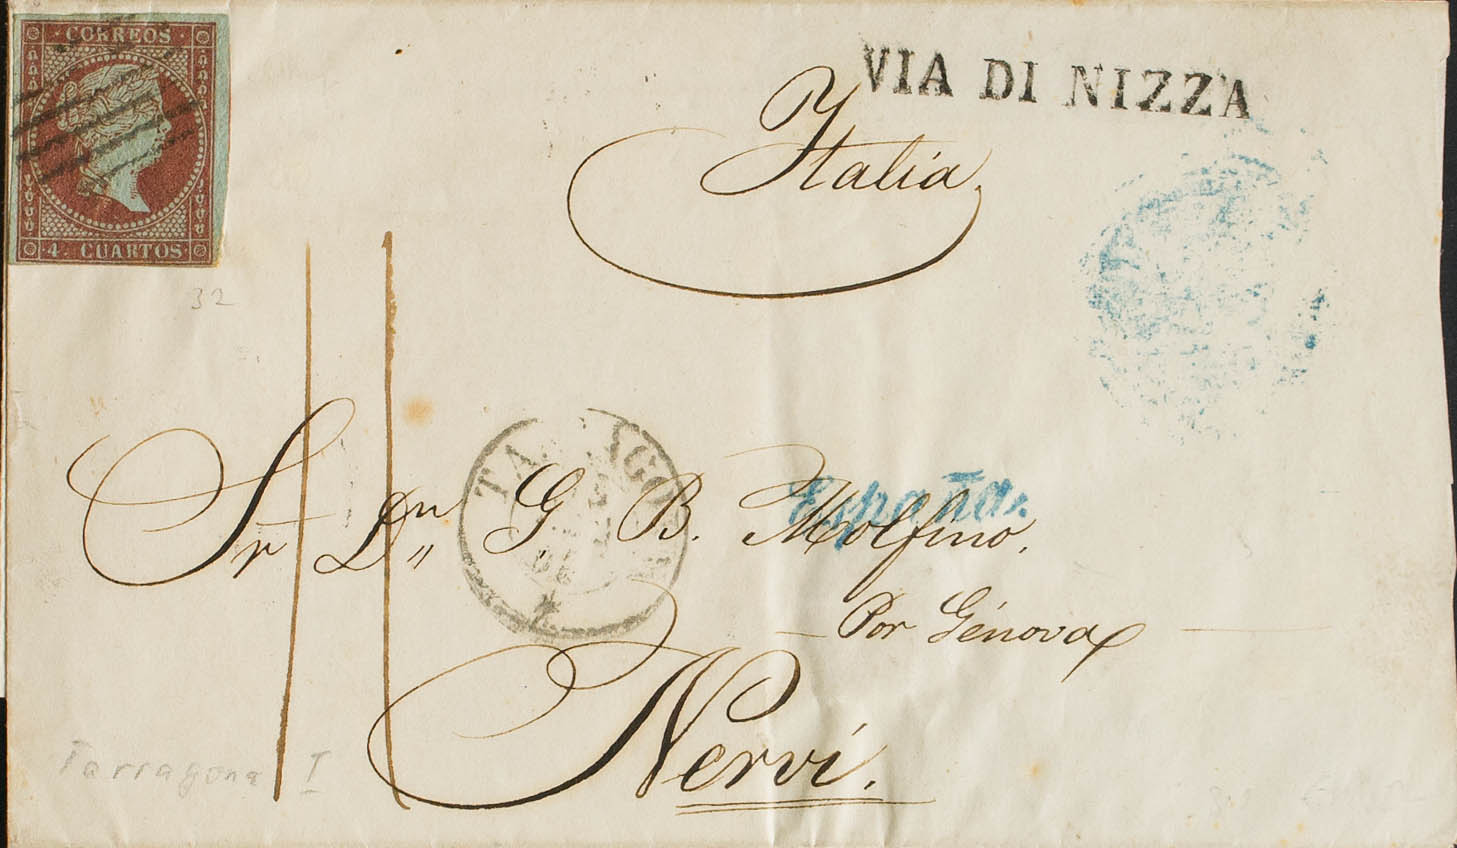 CORREOS
4. CUARTOS
VIA DI NIZZA
Italia.
32
España.
Sr Dn G B. Molfino.
Por Génova
Nervi.
Tarragona I